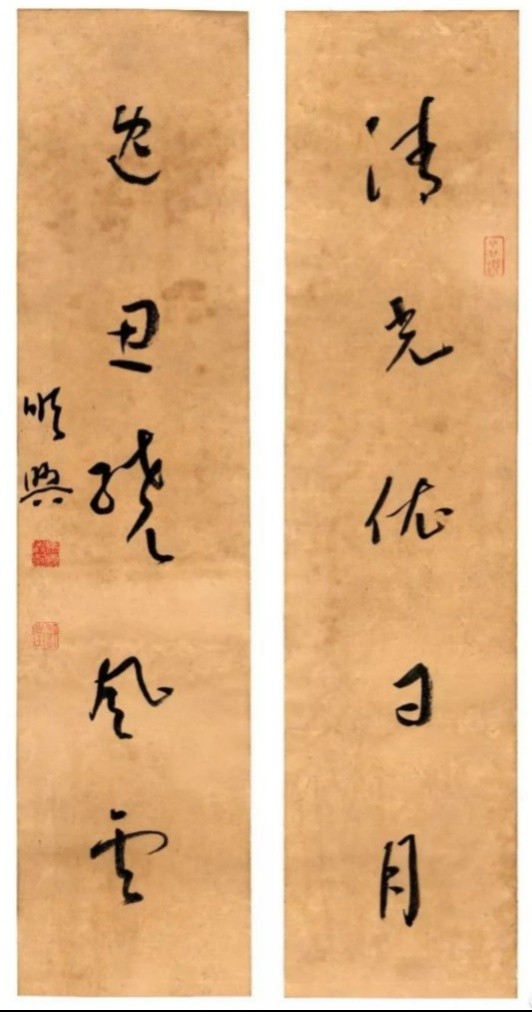 清光依日月
逸思繞風雲
順興